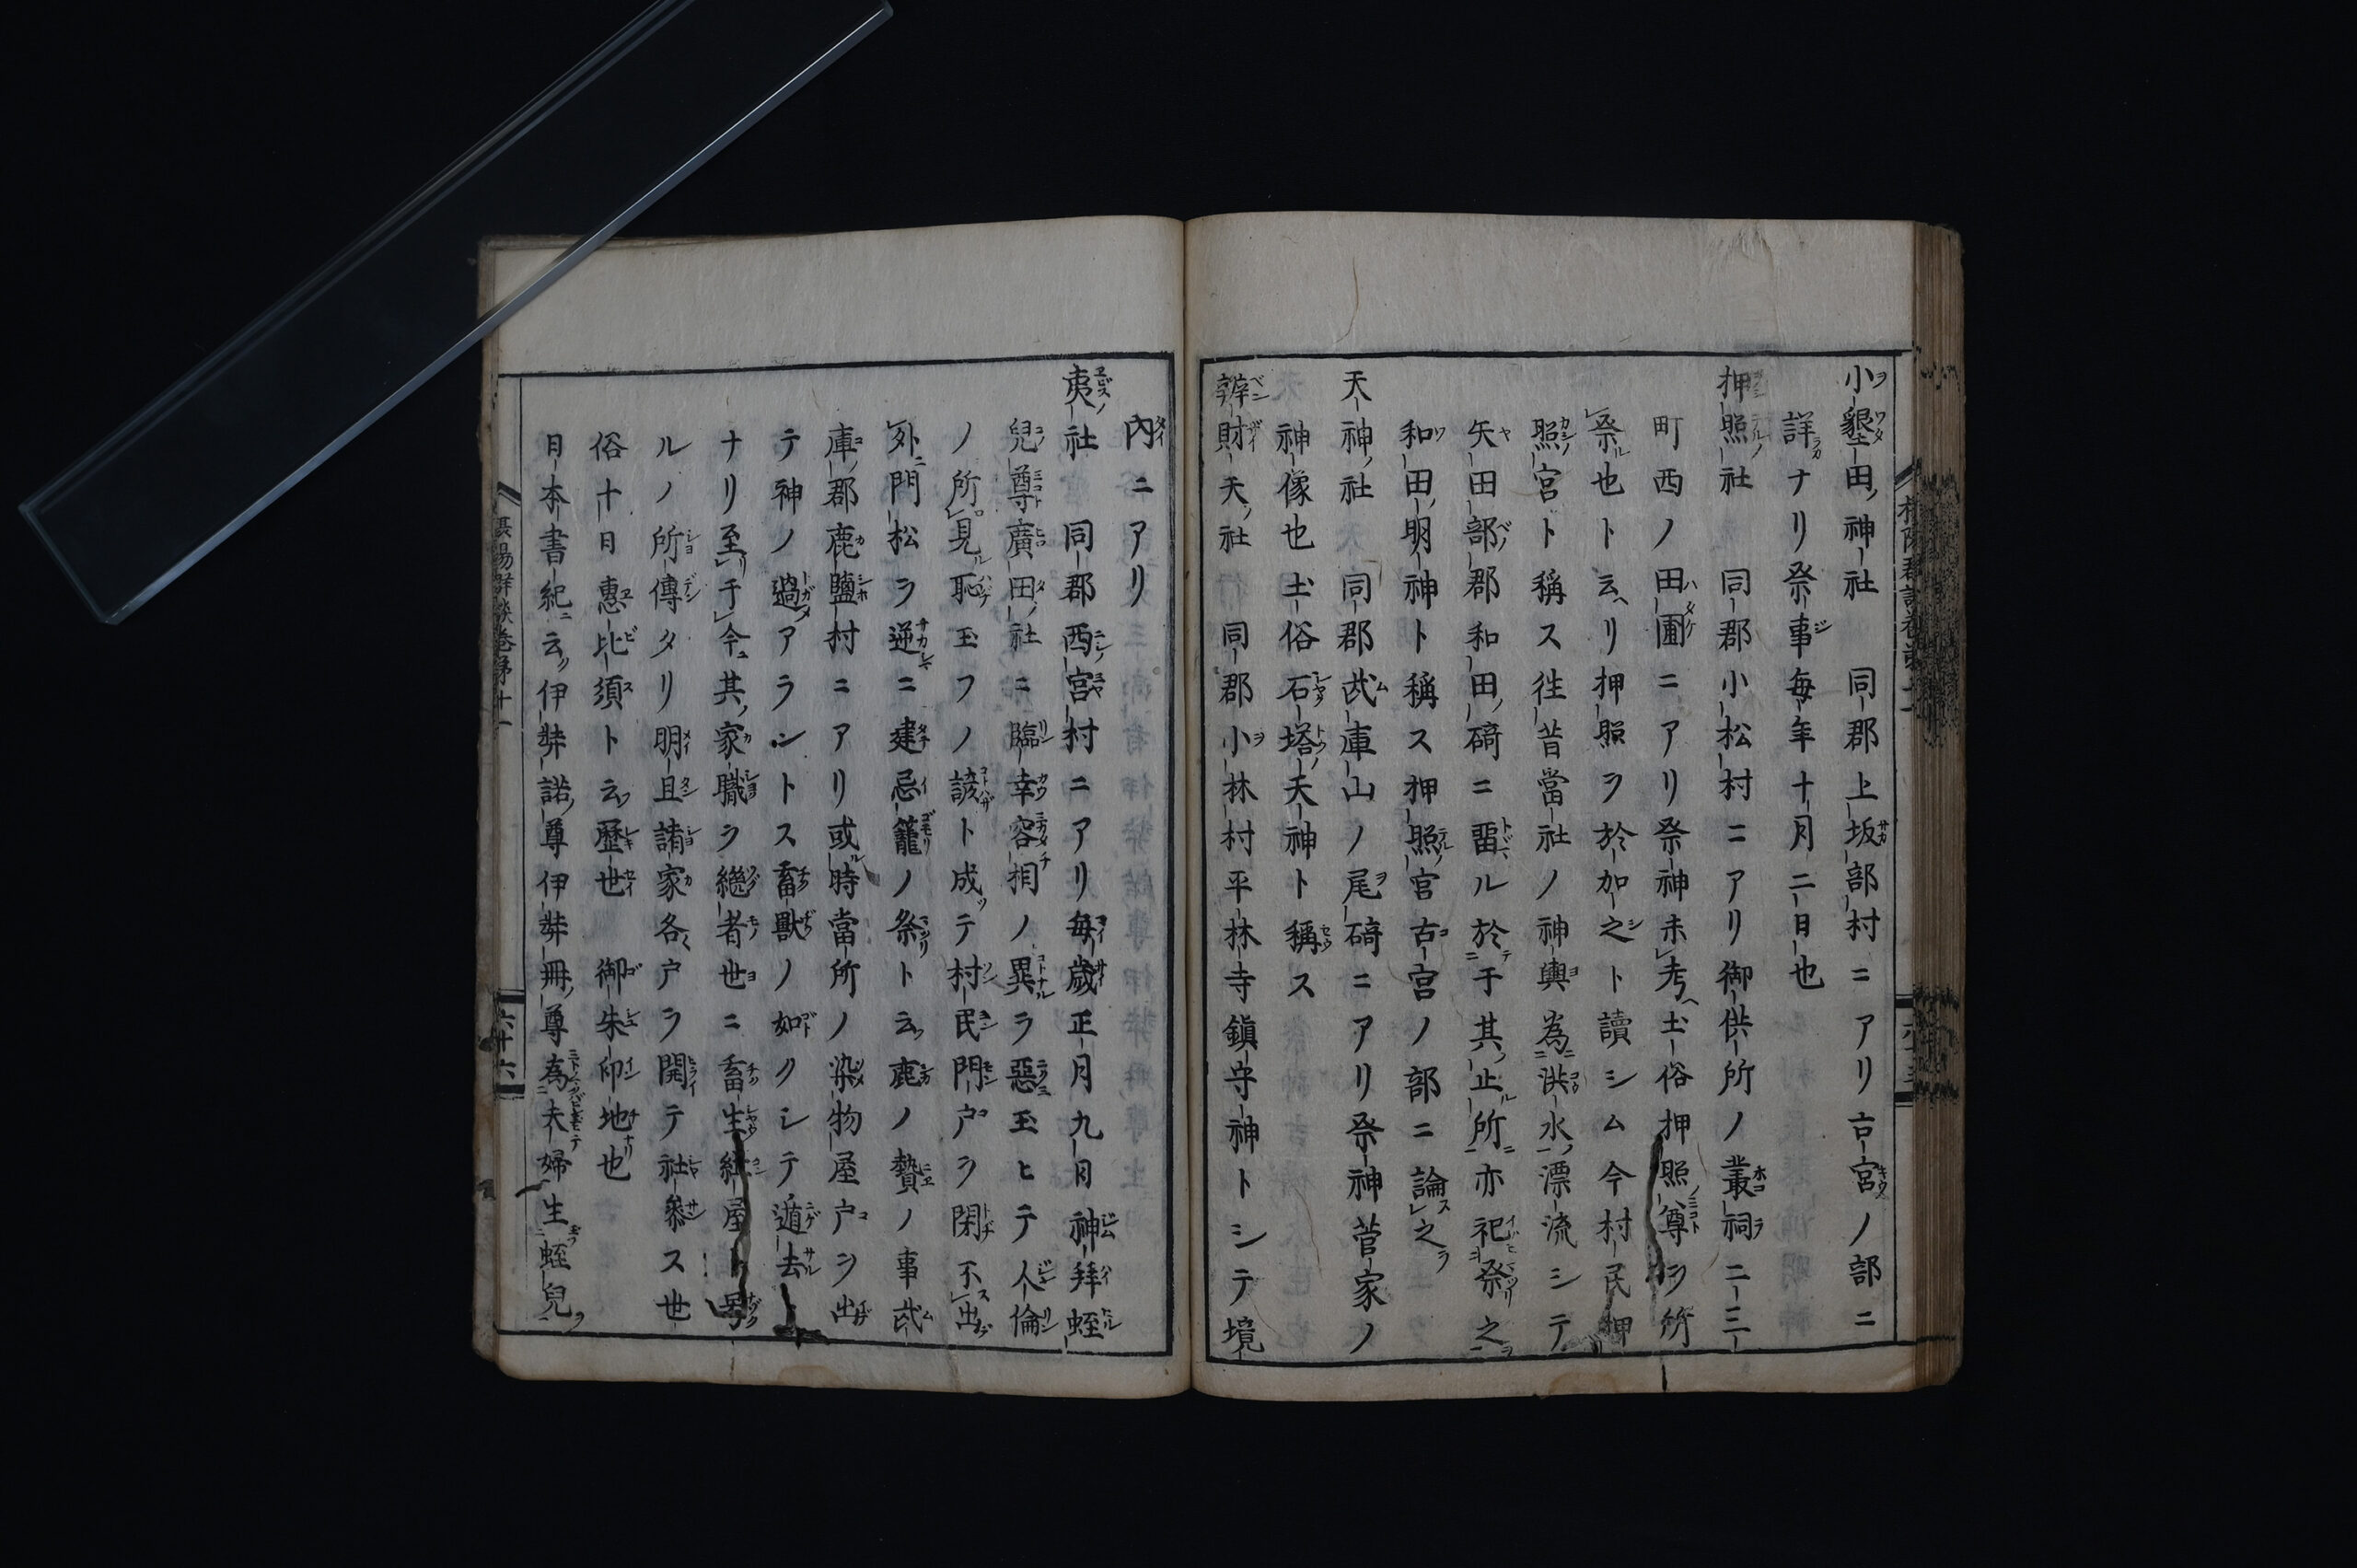 小墾田神社 同郡上坂部村ニアリ古宮ノ部ニ
詳ナリ祭事毎年十月二日也
押照社 同郡小松村ニアリ御供所ノ叢祠二三
町西ノ田圃ニアリ祭神未考土俗押照尊ヲ所
祭也ト云リ押照ヲ於加之ト讀シム今村民押
照宮ト稱ス徃昔當社ノ神輿為洪水漂流シテ
矢田部郡和田碕ニ畱ル於于其止所亦祀祭之
和田明神ト稱ス押照宮古宮ノ部ニ論之
天神社 同郡武庫山ノ尾碕ニアリ祭神菅家ノ
神像也土俗石塔天神ト稱ス
辨財天社 同郡小林村平林寺鎮守神トシテ境
內ニアリ
夷社 同郡西宮村ニアリ毎歳正月九日神拜蛭
兒尊廣田社ニ臨幸容相ノ異ヲ惡玉ヒテ人倫
ノ所見恥玉フノ諺ト成テ村民門戸ヲ閉不出
外門松ヲ逆ニ建忌籠ノ祭ト云鹿ノ贄ノ事武
庫郡鹿鹽村ニアリ或時當所ノ染物屋戸ヲ出
テ神ノ過アラントス畜獸ノ如クシテ遁去
ナリ至于今其家職ヲ繼者世ニ畜生紺屋ト号
ルノ所傳タリ明旦諸家各戸ヲ開テ社參ス世
俗十日惠比須ト云歷世 御朱印地也
日本書紀ニ云伊弉諾尊伊弉冊尊為夫婦生蛭兒
攝陽群談卷第十一
六十六